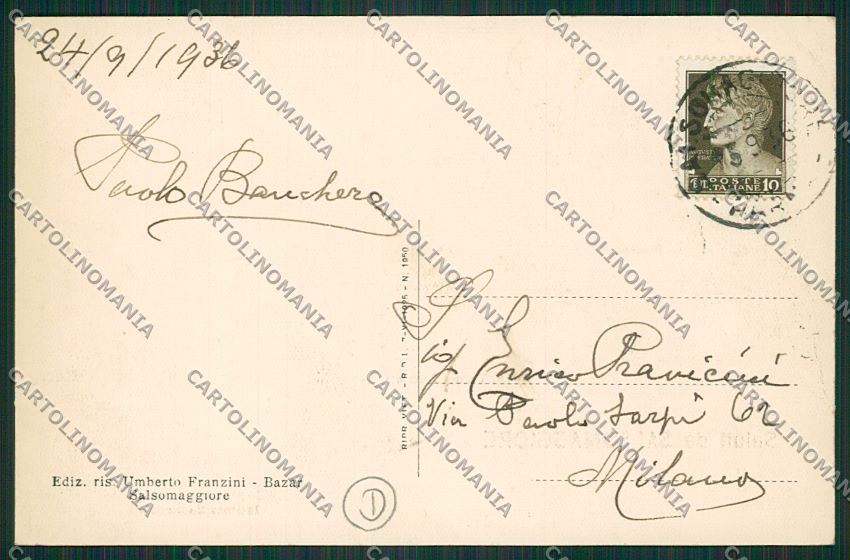 24/9/1936
Paolo Banchero
POSTE
ITALIANE 10
RIPR. VIET. - R.D.L. 7-VI-1926 - N. 1950
Sig. Enrico Pravicini
Via Paolo Sarpi 62
Milano
Ediz. ris. Umberto Franzini - Bazar
Salsomaggiore
D
CARTOLINOMANIA